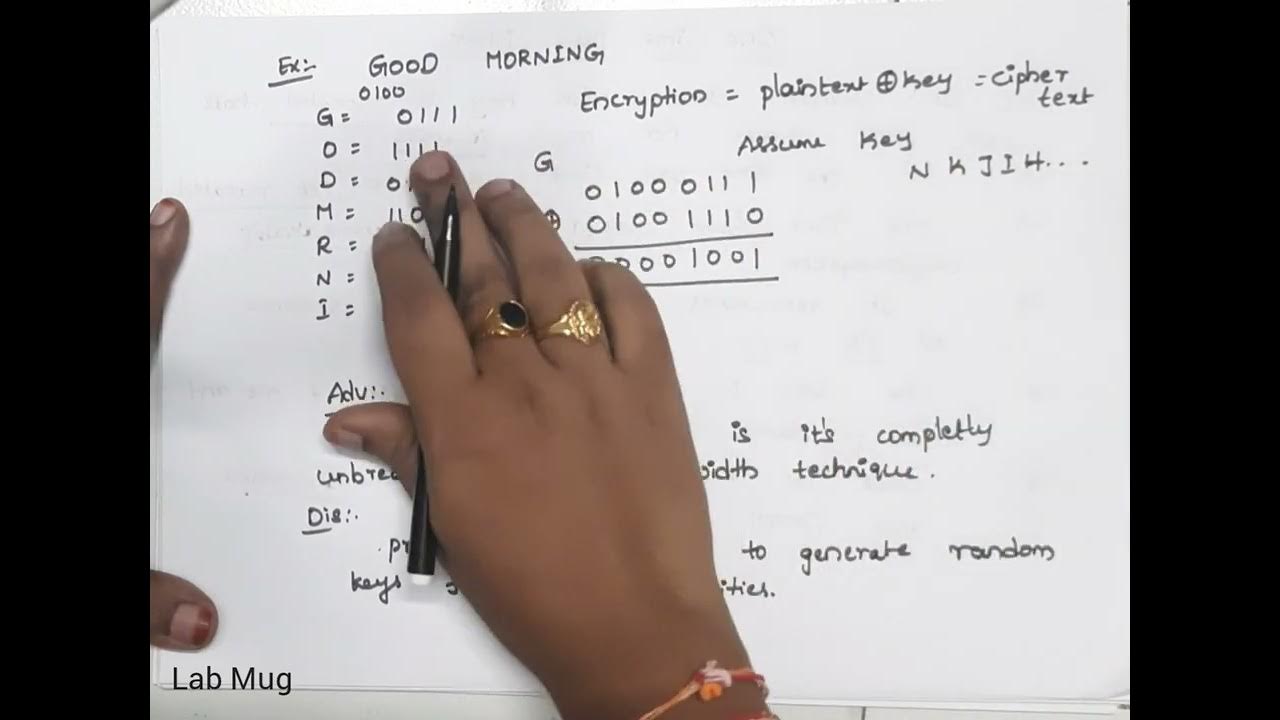 Ex:- GOOD MORNING
0100
G = 0111
O = 1111
D = 0
M = 110
R =
N =
I =
Encryption = plaintext ⊕ key = cipher
text
Assume key
N K J I H...
G
0 1 0 0 0 1 1 1
⊕ 0 1 0 0 1 1 1 0
0 0 0 0 1 0 0 1
Adv:-
is it's completly
technique.
Dis:-
to generate random
keys
Lab Mug